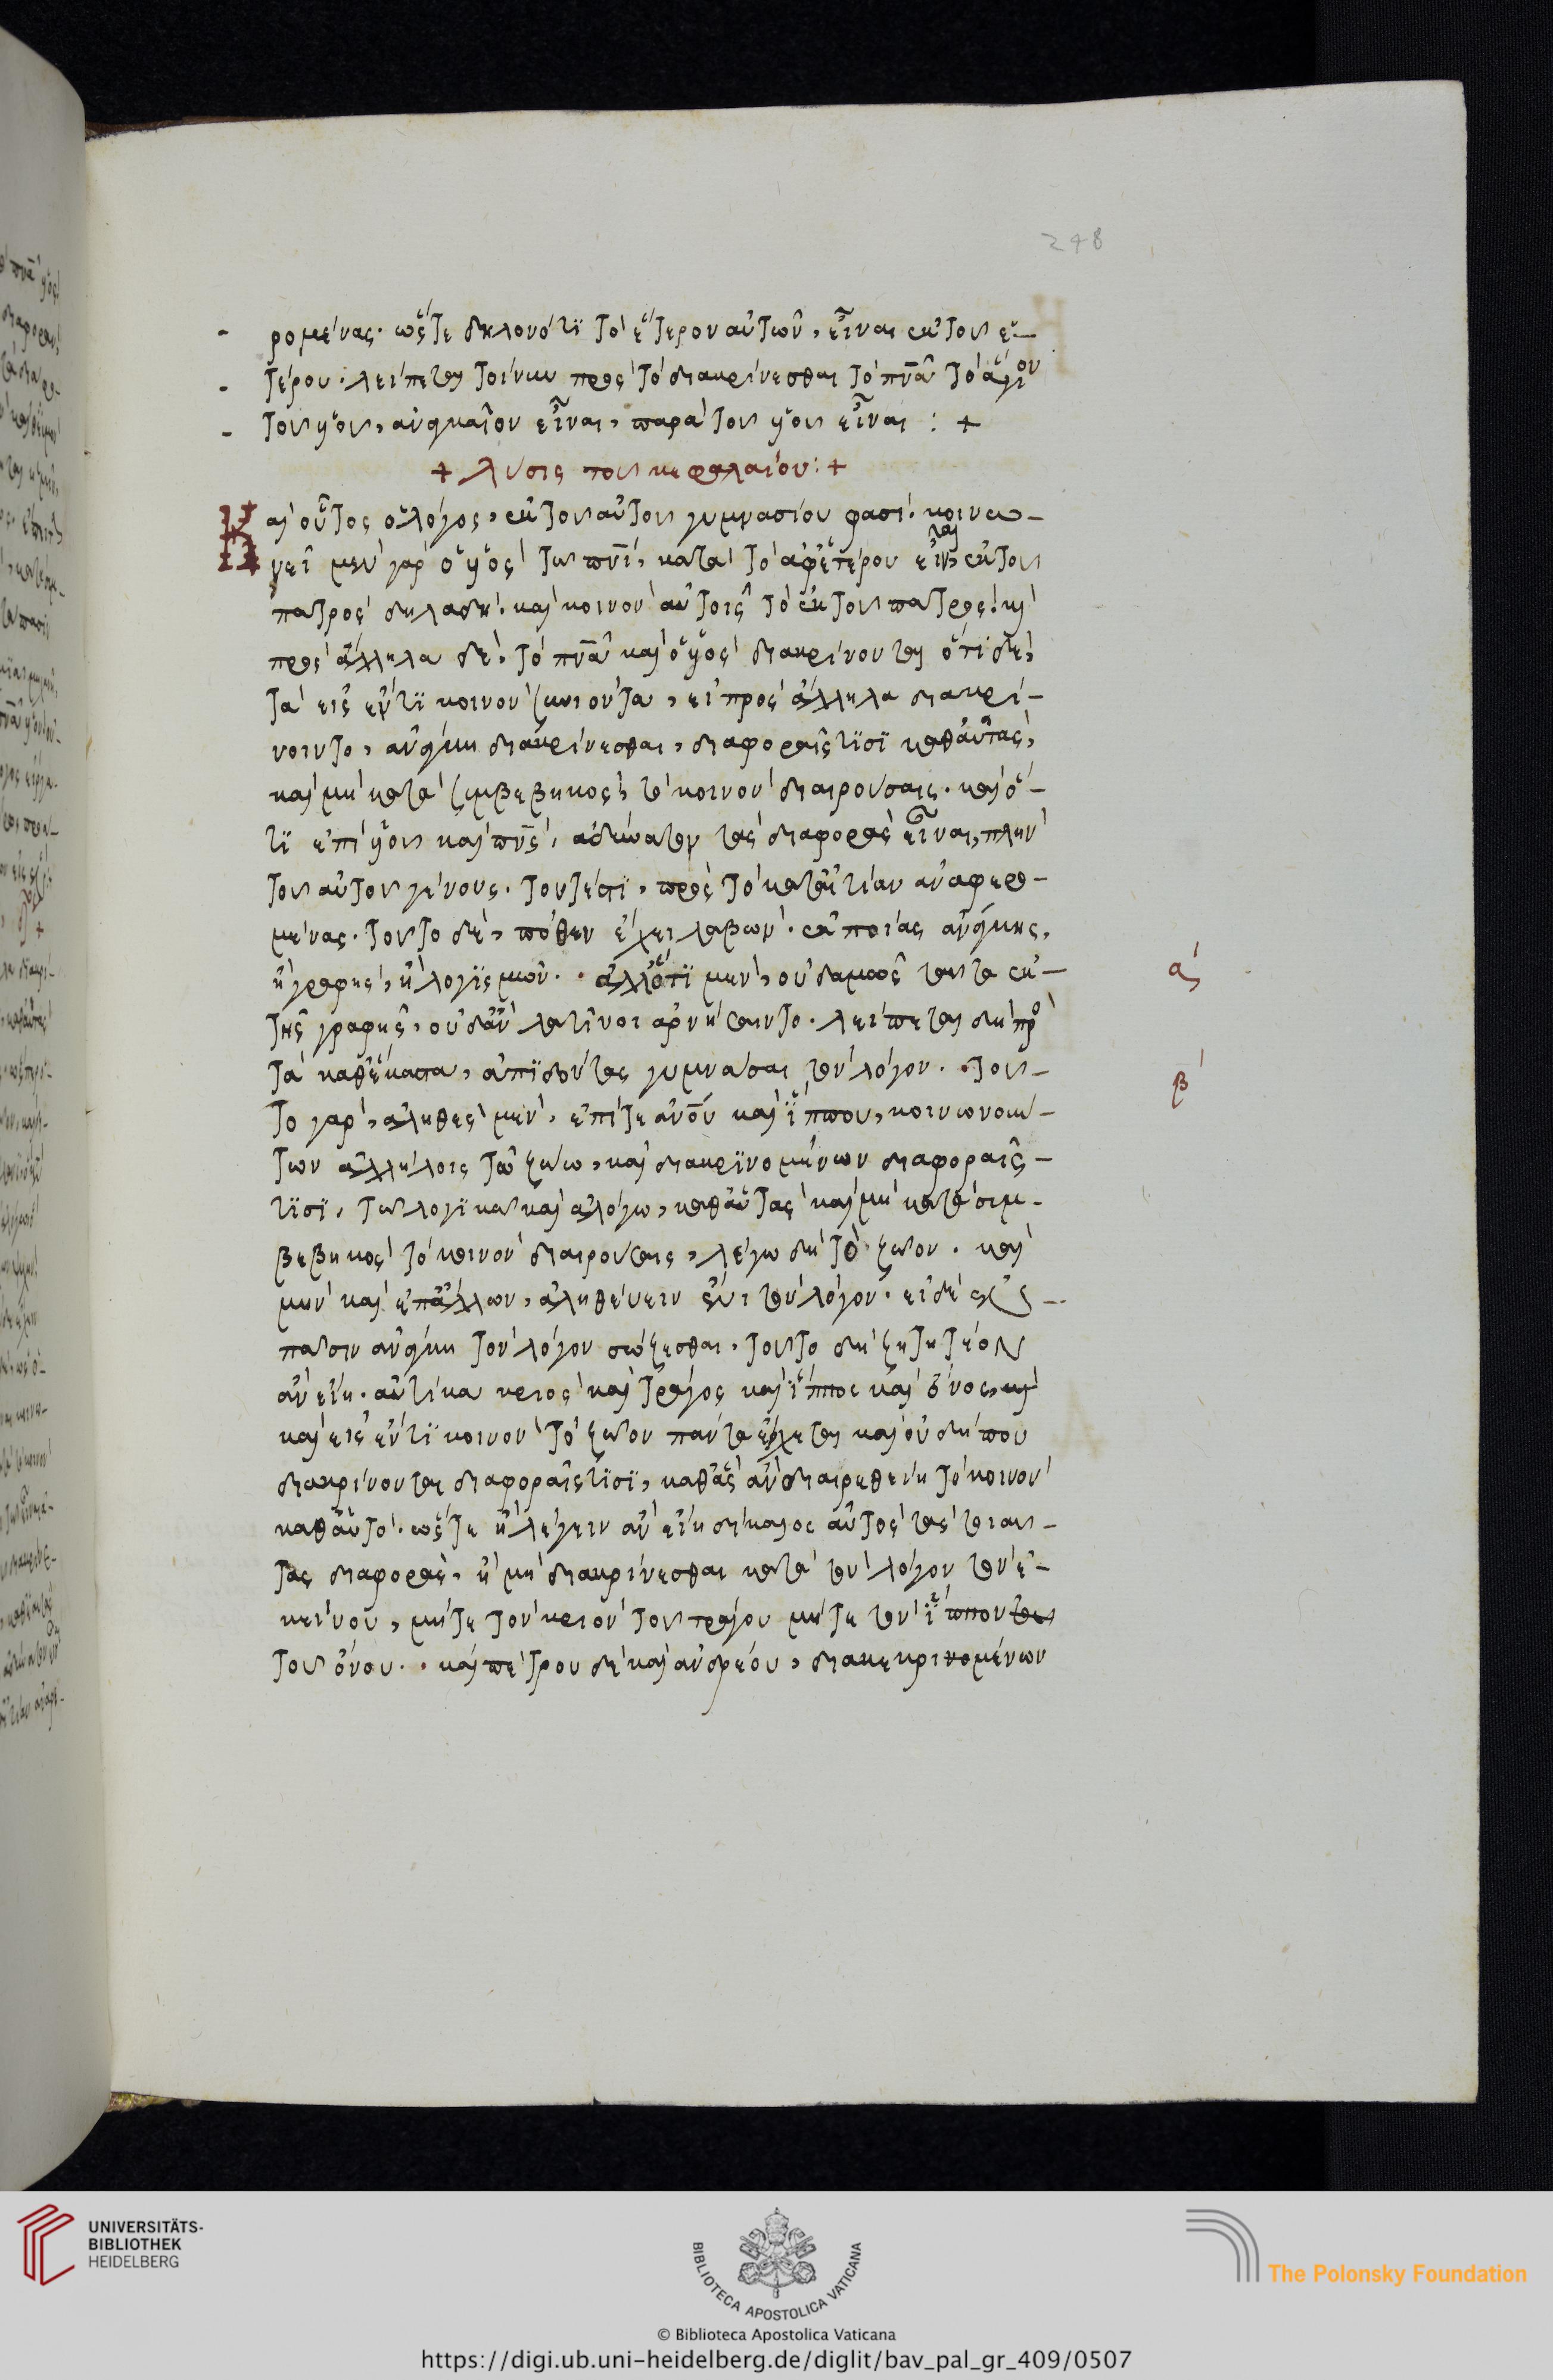 248
ρομένας. ὥστε δηλονότι τὸ ἕτερον αὐτῶν, εἶναι ἐκ τοῦ ἑ-
τέρου. λείπεται τοίνυν πρὸς τὸ διακρίνεσθαι τὸ πνᾶ τὸ ἅγιον
τοῦ υἱοῦ, ἀναγκαῖον εἶναι, παρὰ τοῦ υἱοῦ εἶναι : +
+ λύσις του κεφαλαίου : +
Καὶ οὗτος ὁ λόγος, ἐκ τοῦ αὐτοῦ γυμνασίου φασί. κοινω-
νεῖ μὲν γὰρ ὁ υἱὸς τῶ πνι, κατὰ τὸ ἀφετέρου εἶναι, ἐκ τοῦ
πατρὸς δηλαδή. καὶ κοινὸν αὐτοῖς τὸ ἐκ τοῦ πατρός. καὶ
πρὸς ἄλληλα δὲ, τὸ πνᾶ καὶ ὁ υἱὸς διακρίνονται ὅτι δὲ,
τὰ εἰς ἕν τι κοινὸν συνιόντα, εἰ πρὸς ἄλληλα διακρί-
νοιντο, ἀνάγκη διακρίνεσθαι, διαφοραῖς τισὶ καθαυτὰς,
καὶ μὴ κατὰ συμβεβηκὸς, τὸ κοινὸν διαιρούσαις. καὶ ὅ-
τι ἐπὶ υἱοῦ καὶ πνς, ἀδύνατον τὰς διαφορὰς εἶναι, πλὴν
τοῦ αὐτοῦ γένους. τουτέστι, πρὸς τὸ κατ' αἰτίαν ἀναφερο-
μένας. τοῦτο δὲ, πόθεν ἔχει λαβὼν. ἐκ ποίας ἀνάγκης,
ἢ γραφῆς, ἢ λογισμῶν. ἀλλ' ὅτι μὲν, οὐδαμῶς ταῦτα ἐκ-
τῆς γραφῆς, οὐδ' ἂν λατῖνοι ἀρνήσαιντο. λείπεται δὴ πρὸ
τὰ καθέκαστα, ἀπιδόντας γυμνάσαι τὸν λόγον. τοῦ-
το γὰρ, ἀληθὲς μὲν, ἐπί τε ἀνου καὶ ἵππου, κοινωνούν-
των ἀλλήλοις τῶ ζώω, καὶ διακρινομένων διαφοραῖς
τισὶ, τῶ λογικῶ καὶ ἀλόγω, καθαυτὰς καὶ μὴ κατὰ συμ-
βεβηκὸς τὸ κοινὸν διαιρούσαις, λέγω δὴ τὸ ζῶον. καὶ
μὴν καὶ ἐπ' ἄλλων, ἀληθεύειν ἔνι τὸν λόγον. εἰ δὲ
πᾶσιν ἀνάγκη τὸν λόγον σώζεσθαι, τοῦτο δὴ ζητητέον
ἂν εἴη. αὐτίκα κριὸς καὶ τράγος καὶ ἵππος καὶ ὄνος,
καὶ εἰς ἕν τι κοινὸν τὸ ζῶον πάντα ἔρχεται καὶ οὐ δήπου
διακρίνονται διαφοραῖς τισὶ, καθ' ἃς ἂν διαιρεθείη τὸ κοινὸν
καθαυτό. ὥστε ἢ λέγειν ἂν εἴη δίκαιος αὐτὸς τὰς τοιαύ-
τας διαφορὰς, ἢ μὴ διακρίνεσθαι κατὰ τὸν λόγον τὸν ἐ-
κείνου, μήτε τὸν κριὸν τοῦ τράγου μήτε τὸν ἵππον
τοῦ ὄνου. καὶ πέτρου δὲ καὶ ἀνδρέου, διακεκρινομένων
α
β
UNIVERSITÄTS-
BIBLIOTHEK
HEIDELBERG
BIBLIOTECA APOSTOLICA VATICANA
The Polonsky Foundation
© Biblioteca Apostolica Vaticana
https://digi.ub.uni-heidelberg.de/diglit/bav_pal_gr_409/0507